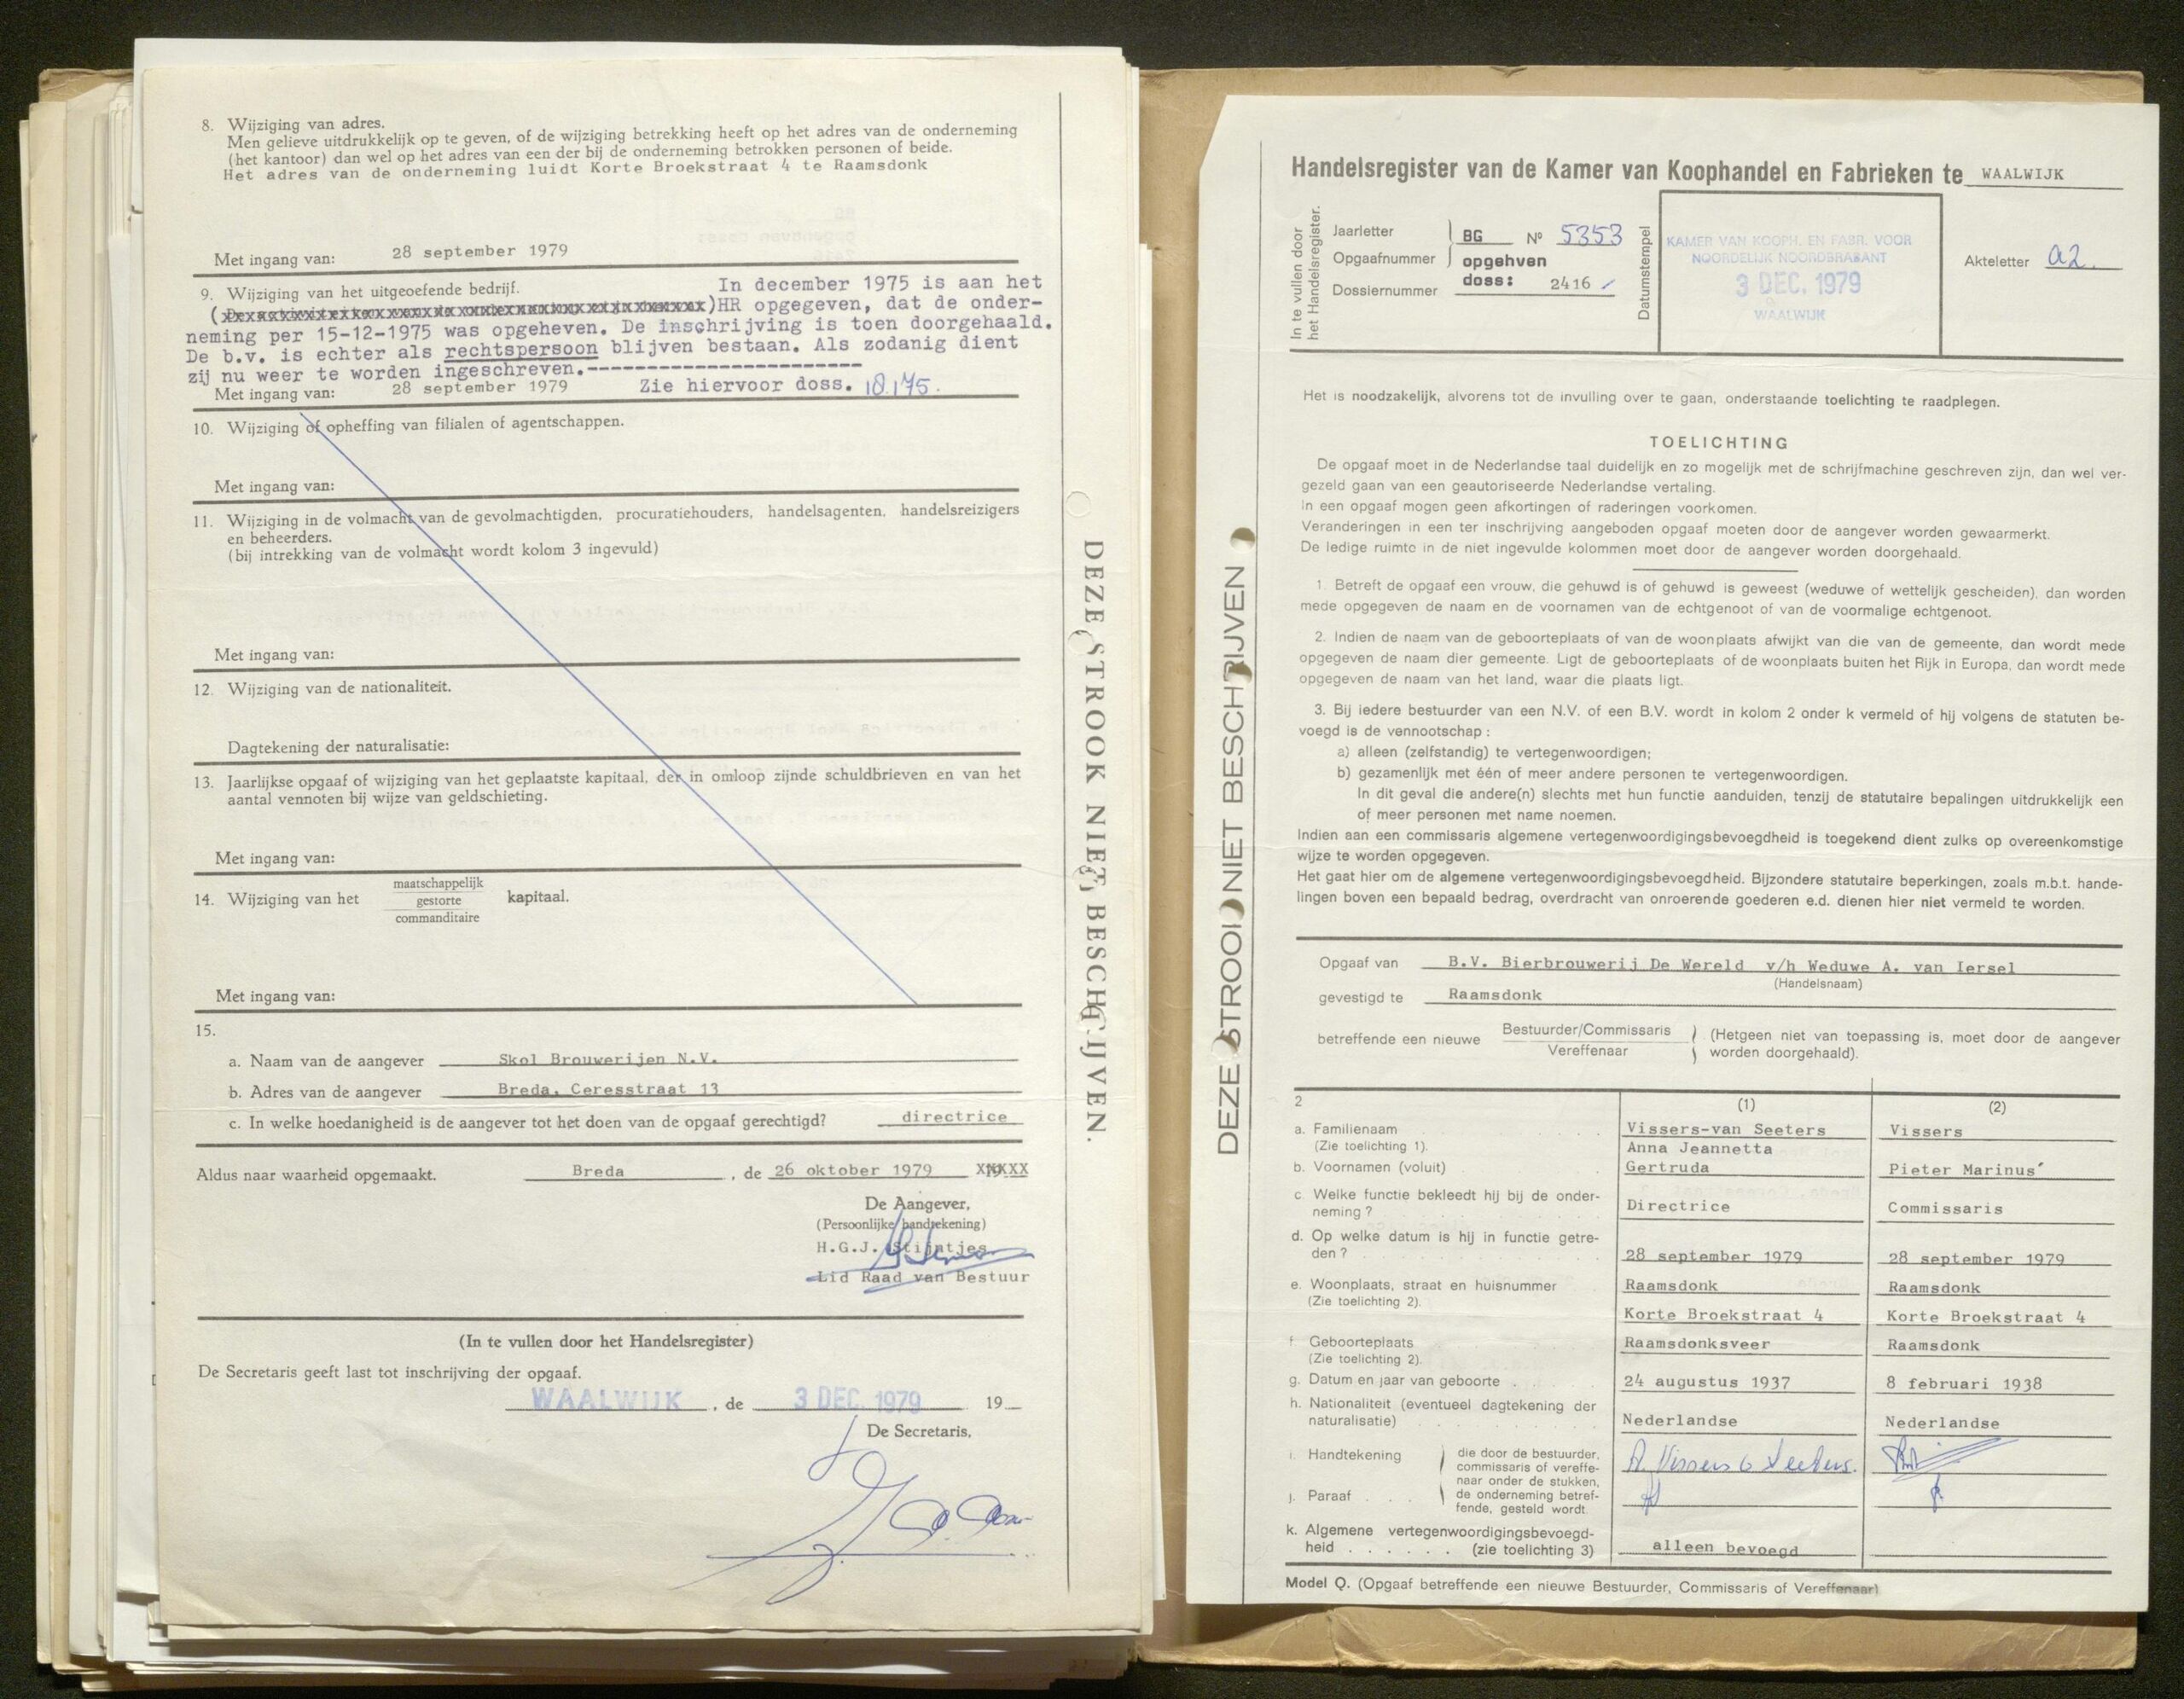 8. Wijziging van adres.
Men gelieve uitdrukkelijk op te geven, of de wijziging betrekking heeft op het adres van de onderneming
(het kantoor) dan wel op het adres van een der bij de onderneming betrokken personen of beide.
Het adres van de onderneming luidt Korte Broekstraat 4 te Raamsdonk
Met ingang van: 28 september 1979
9. Wijziging van het uitgeoefende bedrijf. In december 1975 is aan het
HR opgegeven, dat de onder-
neming per 15-12-1975 was opgeheven. De inschrijving is toen doorgehaald.
De b.v. is echter als rechtspersoon blijven bestaan. Als zodanig dient
zij nu weer te worden ingeschreven.-----------------------
Met ingang van: 28 september 1979 Zie hiervoor doss. 18.175.
10. Wijziging of opheffing van filialen of agentschappen.
Met ingang van:
11. Wijziging in de volmacht van de gevolmachtigden, procuratiehouders, handelsagenten, handelsreizigers
en beheerders.
(bij intrekking van de volmacht wordt kolom 3 ingevuld)
Met ingang van:
12. Wijziging van de nationaliteit.
Dagtekening der naturalisatie:
13. Jaarlijkse opgaaf of wijziging van het geplaatste kapitaal, der in omloop zijnde schuldbrieven en van het
aantal vennoten bij wijze van geldschieting.
Met ingang van:
14. Wijziging van het maatschappelijk gestorte commanditaire kapitaal.
Met ingang van:
15.
a. Naam van de aangever Skol Brouwerijen N.V.
b. Adres van de aangever Breda, Ceresstraat 13
c. In welke hoedanigheid is de aangever tot het doen van de opgaaf gerechtigd? directrice
Aldus naar waarheid opgemaakt. Breda , de 26 oktober 1979
De Aangever,
(Persoonlijke handtekening)
H.G.J. Stijntjes
Lid Raad van Bestuur
(In te vullen door het Handelsregister)
De Secretaris geeft last tot inschrijving der opgaaf.
WAALWIJK , de 3 DEC. 1979 19
De Secretaris,
DEZE STROOK NIET BESCHRIJVEN.
DEZE STROOK NIET BESCHRIJVEN
Handelsregister van de Kamer van Koophandel en Fabrieken te WAALWIJK
In te vullen door
het Handelsregister.
Jaarletter BG Nº 5353
Opgaafnummer opgehven
Dossiernummer doss: 2416
Datumstempel
KAMER VAN KOOPH. EN FABR. VOOR
NOORDELIJK NOORDBRABANT
3 DEC. 1979
WAALWIJK
Akteletter a2.
Het is noodzakelijk, alvorens tot de invulling over te gaan, onderstaande toelichting te raadplegen.
TOELICHTING
De opgaaf moet in de Nederlandse taal duidelijk en zo mogelijk met de schrijfmachine geschreven zijn, dan wel ver-
gezeld gaan van een geautoriseerde Nederlandse vertaling.
In een opgaaf mogen geen afkortingen of raderingen voorkomen.
Veranderingen in een ter inschrijving aangeboden opgaaf moeten door de aangever worden gewaarmerkt.
De ledige ruimte in de niet ingevulde kolommen moet door de aangever worden doorgehaald.
1. Betreft de opgaaf een vrouw, die gehuwd is of gehuwd is geweest (weduwe of wettelijk gescheiden), dan worden
mede opgegeven de naam en de voornamen van de echtgenoot of van de voormalige echtgenoot.
2. Indien de naam van de geboorteplaats of van de woonplaats afwijkt van die van de gemeente, dan wordt mede
opgegeven de naam dier gemeente. Ligt de geboorteplaats of de woonplaats buiten het Rijk in Europa, dan wordt mede
opgegeven de naam van het land, waar die plaats ligt.
3. Bij iedere bestuurder van een N.V. of een B.V. wordt in kolom 2 onder k vermeld of hij volgens de statuten be-
voegd is de vennootschap :
a) alleen (zelfstandig) te vertegenwoordigen;
b) gezamenlijk met één of meer andere personen te vertegenwoordigen.
In dit geval die andere(n) slechts met hun functie aanduiden, tenzij de statutaire bepalingen uitdrukkelijk een
of meer personen met name noemen.
Indien aan een commissaris algemene vertegenwoordigingsbevoegdheid is toegekend dient zulks op overeenkomstige
wijze te worden opgegeven.
Het gaat hier om de algemene vertegenwoordigingsbevoegdheid. Bijzondere statutaire beperkingen, zoals m.b.t. hande-
lingen boven een bepaald bedrag, overdracht van onroerende goederen e.d. dienen hier niet vermeld te worden.
Opgaaf van B.V. Bierbrouwerij De Wereld v/h Weduwe A. van Iersel
(Handelsnaam)
gevestigd te Raamsdonk
betreffende een nieuwe Bestuurder/Commissaris Vereffenaar (Hetgeen niet van toepassing is, moet door de aangever
worden doorgehaald).
2 (1) (2)
a. Familienaam Vissers-van Seeters Vissers
(Zie toelichting 1). Anna Jeannetta
b. Voornamen (voluit) Gertruda Pieter Marinus
c. Welke functie bekleedt hij bij de onder-
neming ? Directrice Commissaris
d. Op welke datum is hij in functie getre-
den ? 28 september 1979 28 september 1979
e. Woonplaats, straat en huisnummer Raamsdonk Raamsdonk
(Zie toelichting 2). Korte Broekstraat 4 Korte Broekstraat 4
f Geboorteplaats Raamsdonksveer Raamsdonk
(Zie toelichting 2).
g. Datum en jaar van geboorte 24 augustus 1937 8 februari 1938
h. Nationaliteit (eventueel dagtekening der
naturalisatie) Nederlandse Nederlandse
i. Handtekening die door de bestuurder,
commissaris of vereffe-
naar onder de stukken,
j. Paraaf de onderneming betref-
fende, gesteld wordt.
k. Algemene vertegenwoordigingsbevoegd-
heid (zie toelichting 3) alleen bevoegd
Model Q. (Opgaaf betreffende een nieuwe Bestuurder, Commissaris of Vereffenaar)